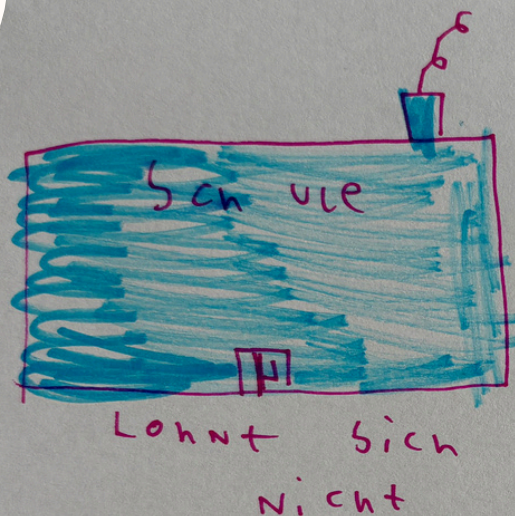 Schule
Lohnt Sich
Nicht